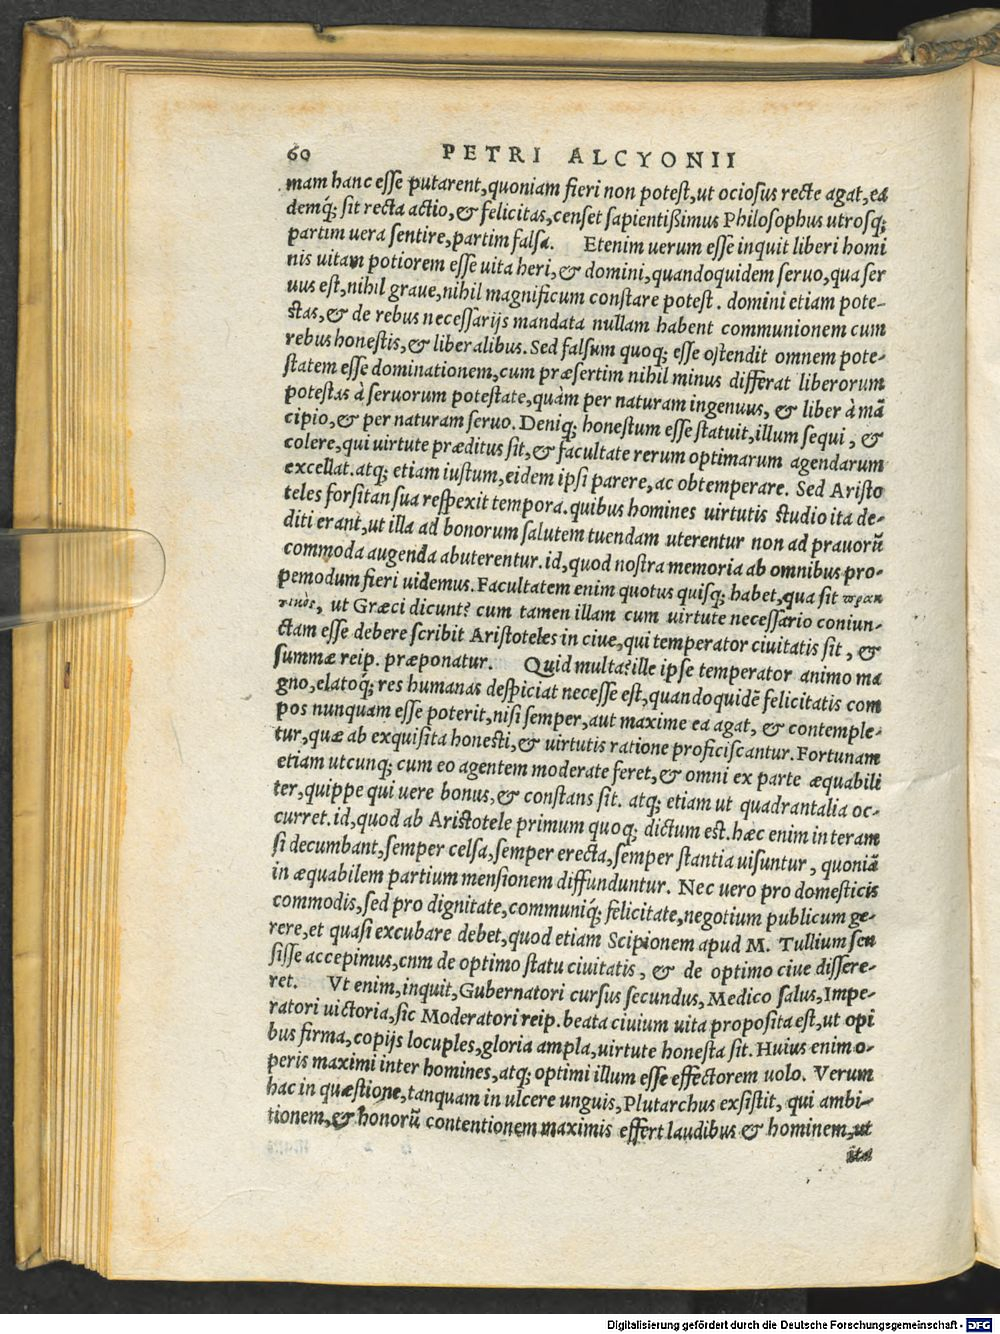 60 PETRI ALCYONII
mam hanc esse putarent, quoniam fieri non potest, ut ociosus recte agat, ea
demq́; sit recta actio, & felicitas, censet sapientißimus Philosophus utrosq;
partim uera sentire, partim falsa. Etenim uerum esse inquit liberi homi
nis uitam potiorem esse uita heri, & domini, quandoquidem seruo, qua ser
uus est, nihil graue, nihil magnificum constare potest. domini etiam pote-
stas, & de rebus necessarijs mandata nullam habent communionem cum
rebus honestis, & liberalibus. Sed falsum quoq; esse ostendit omnem pote-
statem esse dominationem, cum præsertim nihil minus differat liberorum
potestas à seruorum potestate, quàm per naturam ingenuus, & liber à mā
cipio, & per naturam seruo. Deniq; honestum esse statuit, illum sequi, &
colere, qui uirtute præditus sit, & facultate rerum optimarum agendarum
excellat. atq; etiam iustum, eidem ipsi parere, ac obtemperare. Sed Aristo
teles forsitan sua respexit tempora. quibus homines uirtutis studio ita de-
diti erant, ut illa ad bonorum salutem tuendam uterentur non ad prauorū
commoda augenda abuterentur. id, quod nostra memoria ab omnibus pro-
pemodum fieri uidemus. Facultatem enim quotus quisq; habet, qua sit πρακ
τικὸς, ut Græci dicunt? cum tamen illam cum uirtute necessario coniun-
ctam esse debere scribit Aristoteles in ciue, qui temperator ciuitatis sit, &
summæ reip. præponatur. Quid multa? ille ipse temperator animo ma
gno, elatoq́; res humanas despiciat necesse est, quandoquidē felicitatis com
pos nunquam esse poterit, nisi semper, aut maxime ea agat, & contemple-
tur, quæ ab exquisita honesti, & uirtutis ratione proficiscantur. Fortunam
etiam utcunq; cum eo agentem moderate feret, & omni ex parte æquabili
ter, quippe qui uere bonus, & constans sit. atq; etiam ut quadrantalia oc-
curret. id, quod ab Aristotele primum quoq; dictum est. hæc enim in teram
si decumbant, semper celsa, semper erecta, semper stantia uisuntur, quoniā
in æquabilem partium mensionem diffunduntur. Nec uero pro domesticis
commodis, sed pro dignitate, communiq́; felicitate, negotium publicum ge-
rere, et quasi excubare debet, quod etiam Scipionem apud M. Tullium sen
sisse accepimus, cnm de optimo statu ciuitatis, & de optimo ciue dissere-
ret. Vt enim, inquit, Gubernatori cursus secundus, Medico salus, Impe-
ratori uictoria, sic Moderatori reip. beata ciuium uita proposita est, ut opi
bus firma, copijs locuples, gloria ampla, uirtute honesta sit. Huius enim o-
peris maximi inter homines, atq; optimi illum esse effectorem uolo. Verum
hac in quæstione, tanquam in ulcere unguis, Plutarchus exsistit, qui ambi-
tionem, & honorū contentionem maximis effert laudibus & hominem, ut
ita
Digitalisierung gefördert durch die Deutsche Forschungsgemeinschaft - DFG